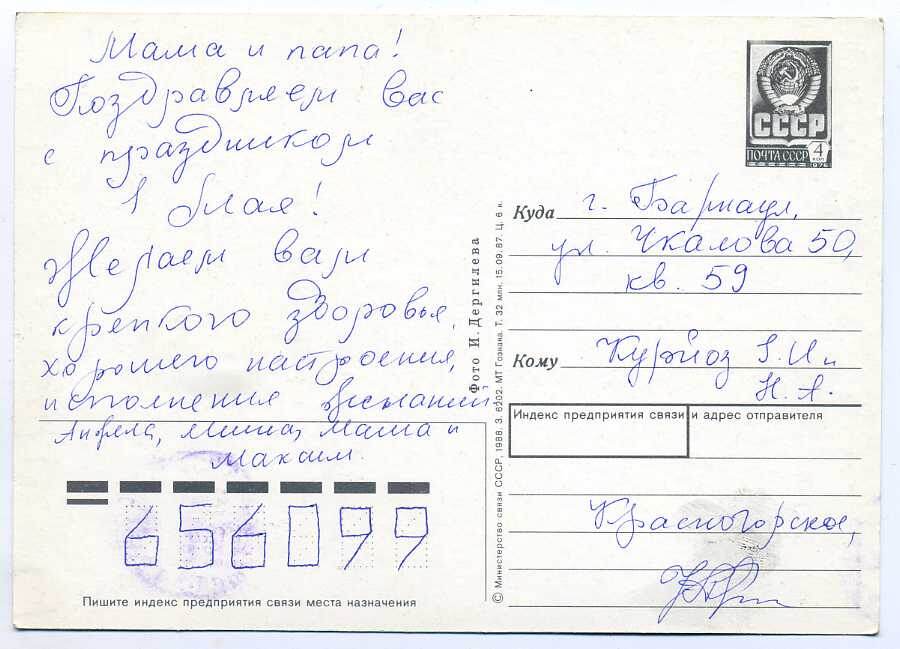 Мама и папа!
Поздравляем вас
с праздником
1 Мая!
Желаем вам
крепкого здоровья,
хорошего настроения,
исполнения желаний.
Анжела, Миша, Маша и
Максим.
656099
Пишите индекс предприятия связи места назначения
Фото И. Дергилева
© Министерство связи СССР, 1988. З. 6202. МТ Гознака. Т. 32 млн. 15.09.87. Ц. 6 к.
СССР
ПОЧТА СССР 4 коп
1976
Куда г. Барнаул,
ул. Чкалова 50,
кв. 59
Кому И и
Н. А.
Индекс предприятия связи и адрес отправителя
Красногорское,